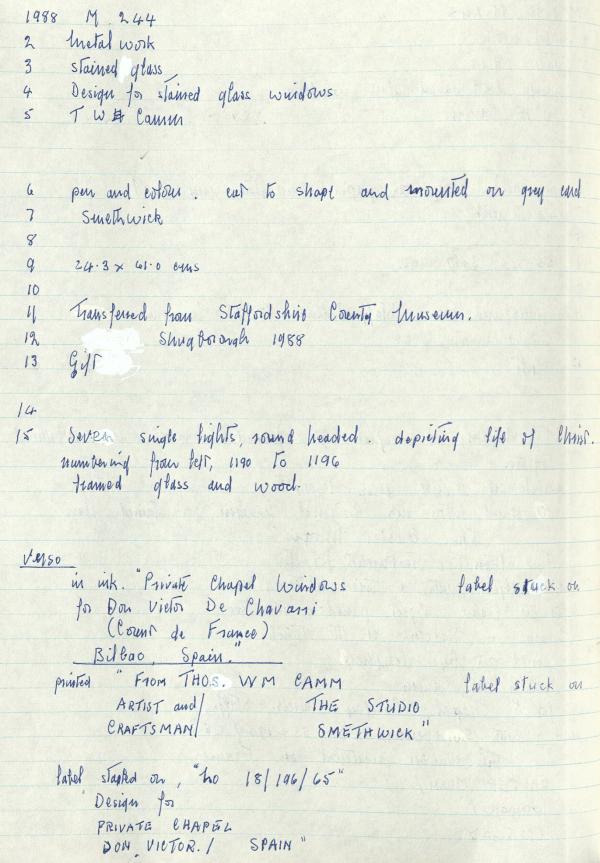 1988 M. 244
2 Metal work
3 stained glass
4 Design for stained glass windows
5 T W Camm
6 pen and colour. cut to shape and mounted on grey card
7 Smethwick
8
9 24.3 x 61.0 cms
10
11 Transferred from Staffordshire County Museum.
12 Shugborough 1988
13 Gift
14
15 Seven single lights, round headed. depicting life of Christ.
numbering from left, 1190 to 1196
framed glass and wood.
Verso
in ink. "Private Chapel Windows label stuck on
for Don Victor De Chavarri
(Count de France)
Bilbao, Spain."
printed "FROM THOS. WM CAMM label stuck on
ARTIST and/ THE STUDIO
CRAFTSMAN/ SMETHWICK"
label stapled on, "No 18/196/65"
"Design for
PRIVATE CHAPEL
DON VICTOR. / SPAIN"